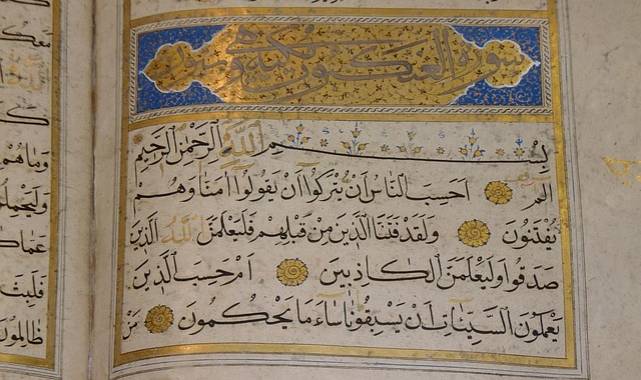 سورة العنكبوت مكية وهي
بسم الله الرحمن الرحيم
الم احسب الناس ان يتركوا ان يقولوا امنا وهم
يفتنون ولقد فتنا الذين من قبلهم فليعلمن الله الذين
صدقوا وليعلمن الكاذبين ام حسب الذين
يعملون السيئات ان يسبقونا ساء ما يحكمون من
معكم
وما هم
وليحملن
عما كا
فلبث
ظالمون